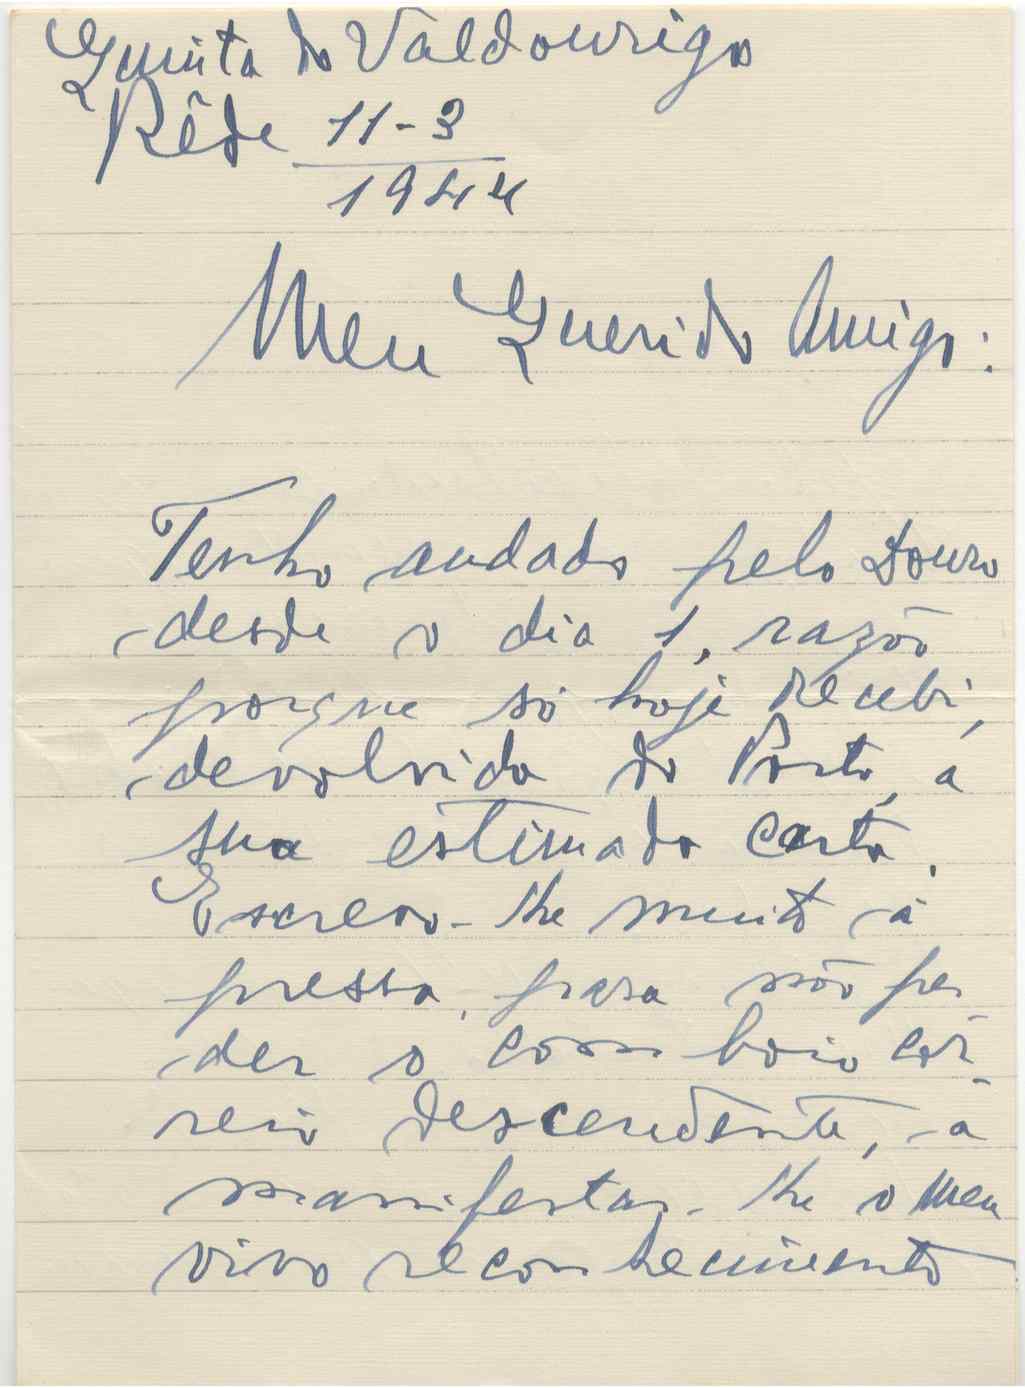 Quinta do Valdourigo
Rêde 11-3
1944
Meu Querido Amigo:
Tenho andado pelo Douro
desde o dia 1, razão
porque só hoje recebi,
devolvida do Porto, a
sua estimada carta.
Escrevo-lhe muito à
pressa, para não per
der o comboio cor-
reio descendente, a
manifestar-lhe o meu
vivo reconhecimento